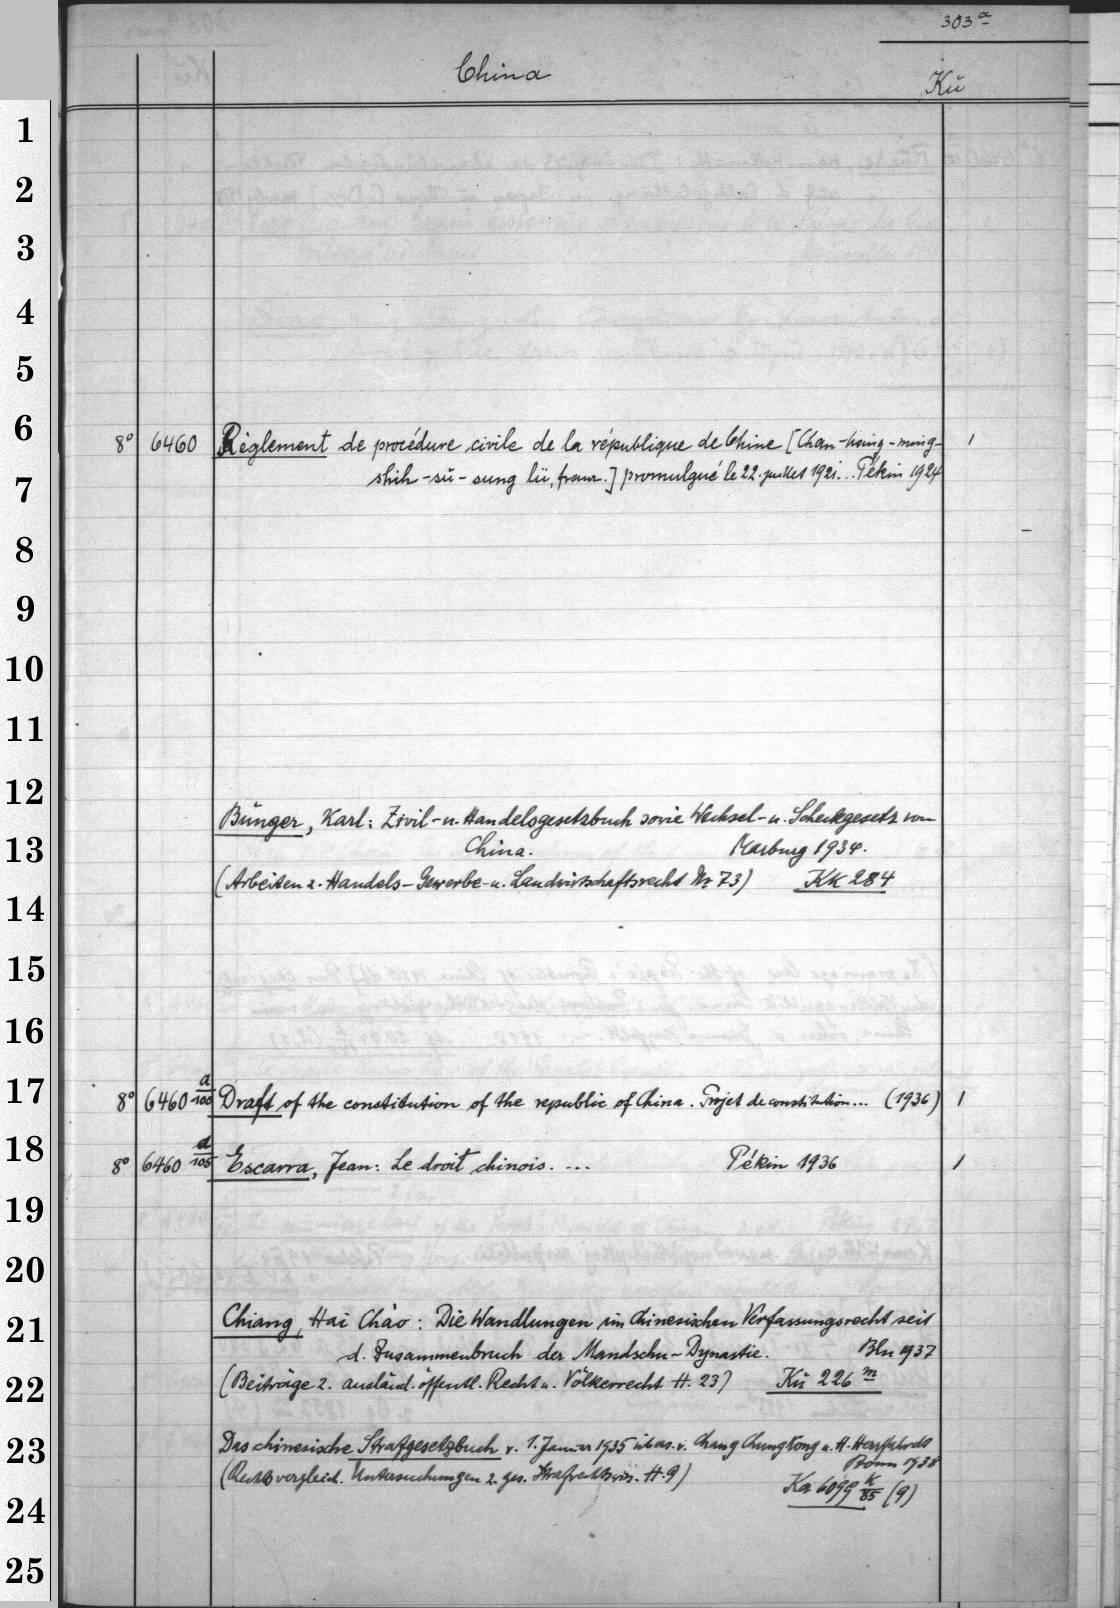 303 a
China
Kü
1
2
3
4
5
6
8° 6460 Règlement de procédure civile de la république de Chine [Chan-hsing-ming- 1
7
shih-sü-sung lü, franz.] promulgué le 22. juillet 1921... Pékin 1924
8
9
10
11
12
Bünger, Karl: Zivil- u. Handelsgesetzbuch sowie Wechsel- u. Scheckgesetz von
13
China. Marburg 1934.
(Arbeiten z. Handels-Gewerbe- u. Landwirtschaftsrecht Nr 73) Kk 284
14
15
16
17
8° 6460 a/100 Draft of the constitution of the republic of China. Projet de constitution... (1936) 1
18
8° 6460 d/105 Escarra, Jean: Le droit chinois. ... Pékin 1936 1
19
20
21
Chiang, Hai Chao: Die Wandlungen im chinesischen Verfassungsrecht seit
d. Zusammenbruch der Mandschu-Dynastie. Bln 1937
22
(Beiträge z. ausländ. öffentl. Recht u. Völkerrecht H. 23) Kü 226 m
23
Das chinesische Strafgesetzbuch v. 1. Januar 1935 übers. v. Chang Chungkong u. H. Herrfahrdt
Bonn 1938
(Rechtsvergleich. Untersuchungen z. ges. Strafrechtswiss. H. 9)
Ka 6099 k/85 (9)
24
25